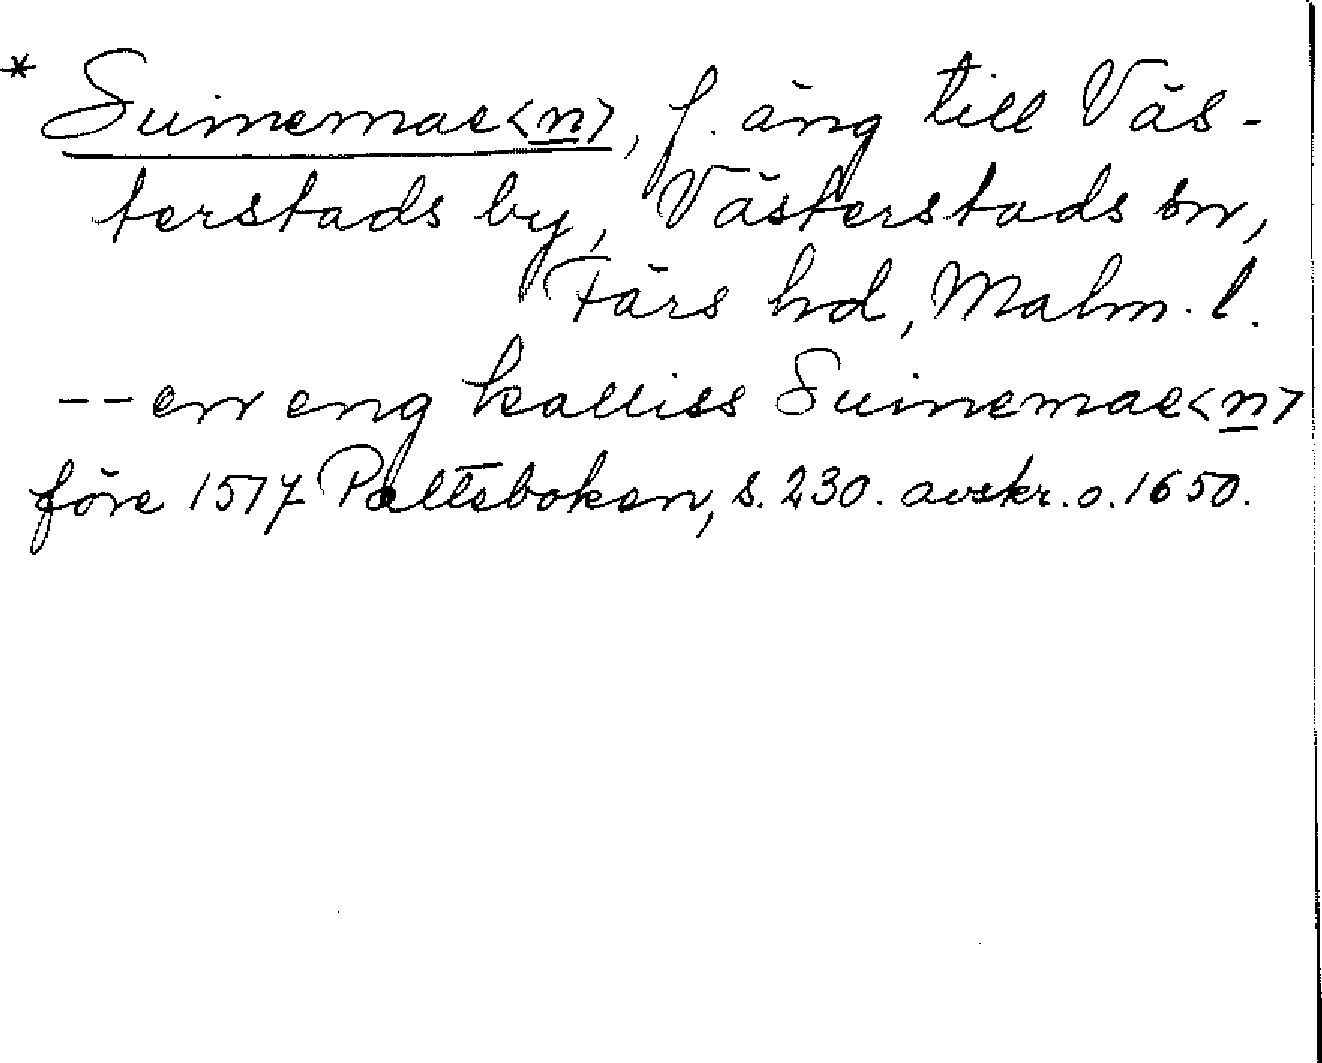 * Suinemae<n>, f. äng till Väs-
terstads by, Västerstads sn,
Färs hd, Malm. l.
-- en eng kalliss Suinemae<n>
före 1517 Paltsboken, s. 230. avskr. o. 1650.